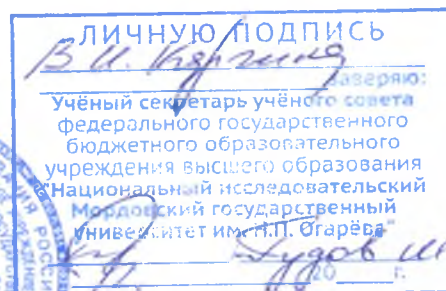 ЛИЧНУЮ ПОДПИСЬ
В.И. Каргина
заверяю:
Учёный секретарь учёного совета
федерального государственного
бюджетного образовательного
учреждения высшего образования
"Национальный исследовательский
Мордовский государственный
университет им. Н.П. Огарёва"
20 г.